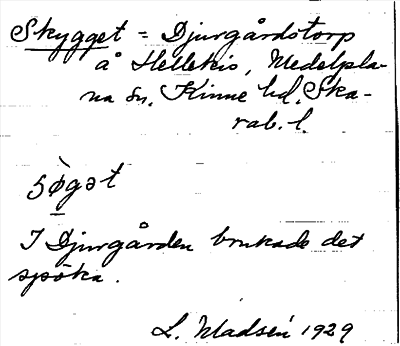 Skygget = Djurgårdstorp
å Hellekis, Medelpla-
na sn. Kinne hd. Ska-
rab. l.
I Djurgården brukade det
spöka.
L. Madsén 1929